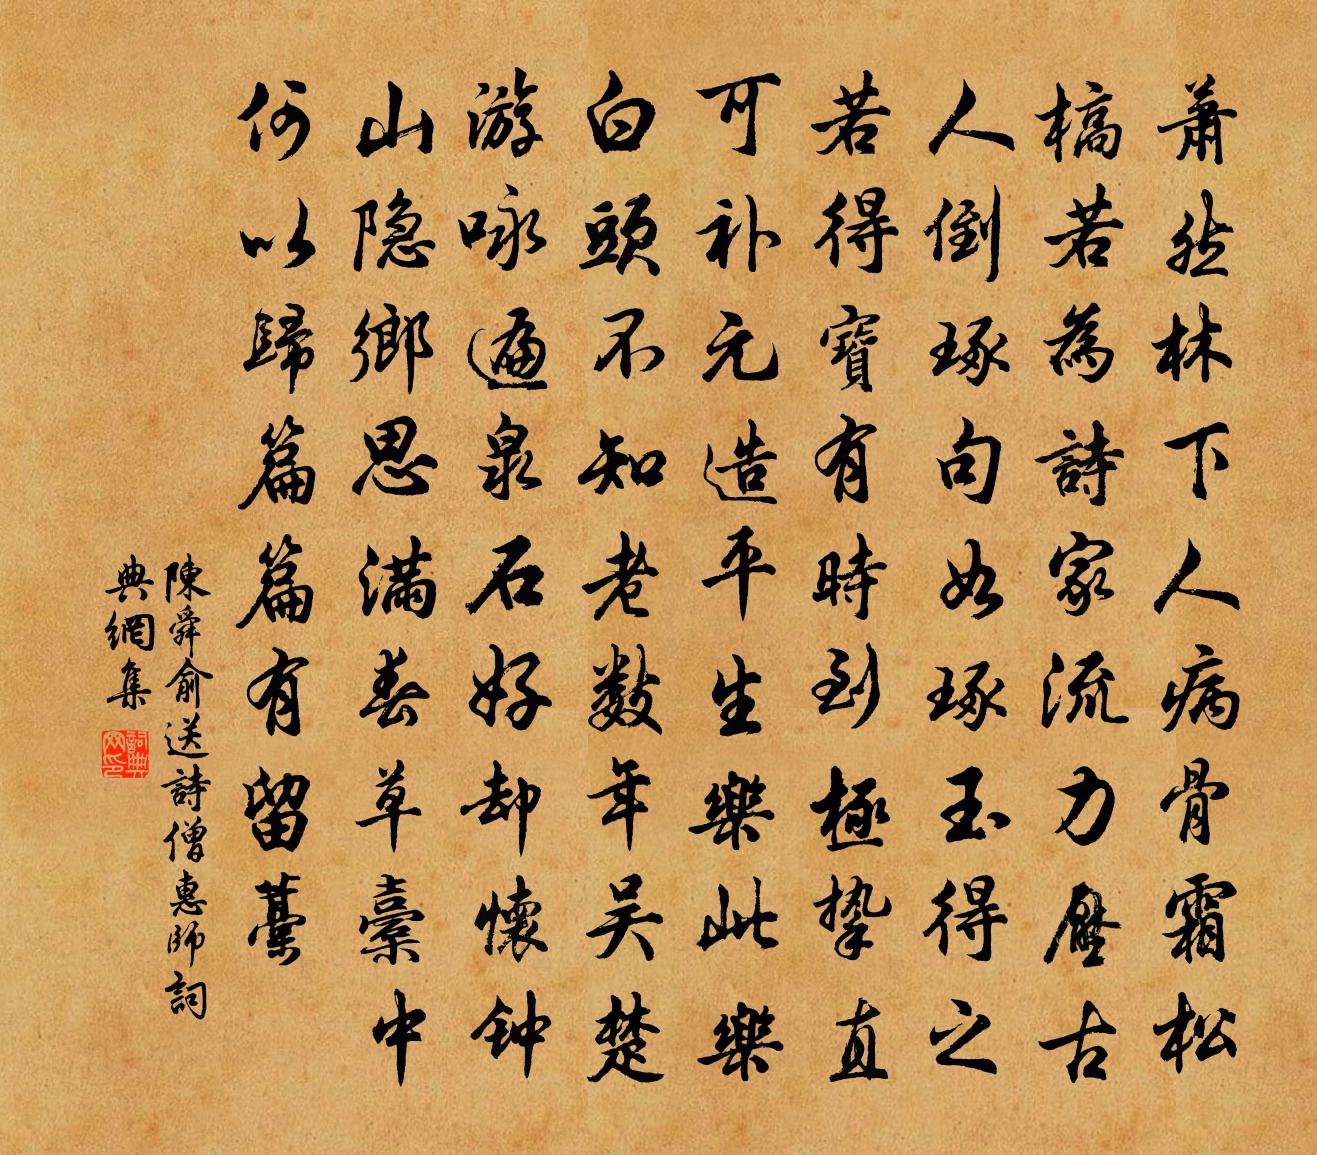 萧然林下人病骨霜松
槁若為詩家流力壓古
人倒琢句如琢玉得之
若得寶有時到極摯直
可补元造平生樂此樂
白頭不知老數年吴楚
游咏遍泉石好却懷钟
山隐鄉思满春草橐中
何以歸篇篇有留藁
陳舜俞送詩僧惠師詞
典網集
詞典網印